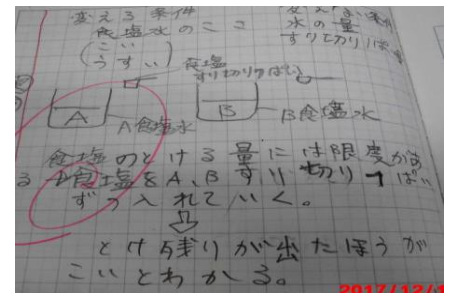 変える条件
食塩水のこさ
(こい
うすい)
変えない条件
水の量
すり切り1ぱい
食塩
すり切り1ぱい
A
A食塩水
B
B食塩水
食塩のとける量には限度があ
る
食塩をA、Bすり切り1ぱい
ずつ入れていく。
とけ残りが出たほうが
こいとわかる。
2017/12/1